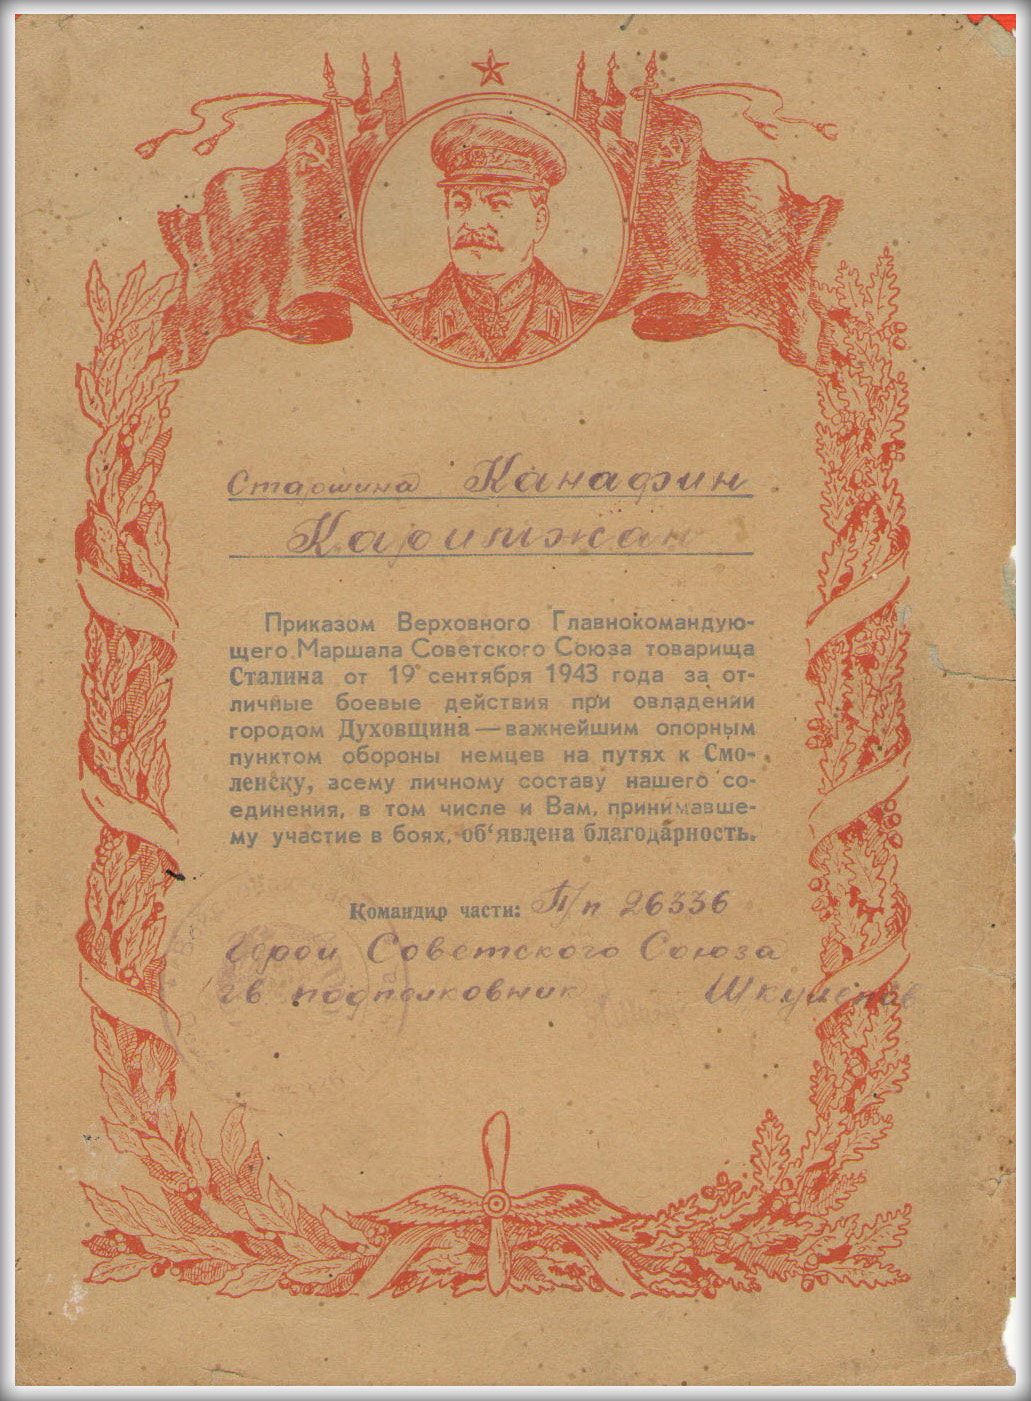 Старшина Канафин
Каримжан
Приказом Верховного Главнокомандую-
щего Маршала Советского Союза товарища
Сталина от 19 сентября 1943 года за от-
личные боевые действия при овладении
городом Духовщина — важнейшим опорным
пунктом обороны немцев на путях к Смо-
ленску, всему личному составу нашего со-
единения, в том числе и Вам, принимавше-
му участие в боях, об'явлена благодарность.
Командир части: П/п 26336
Герой Советского Союза
гв. подполковник